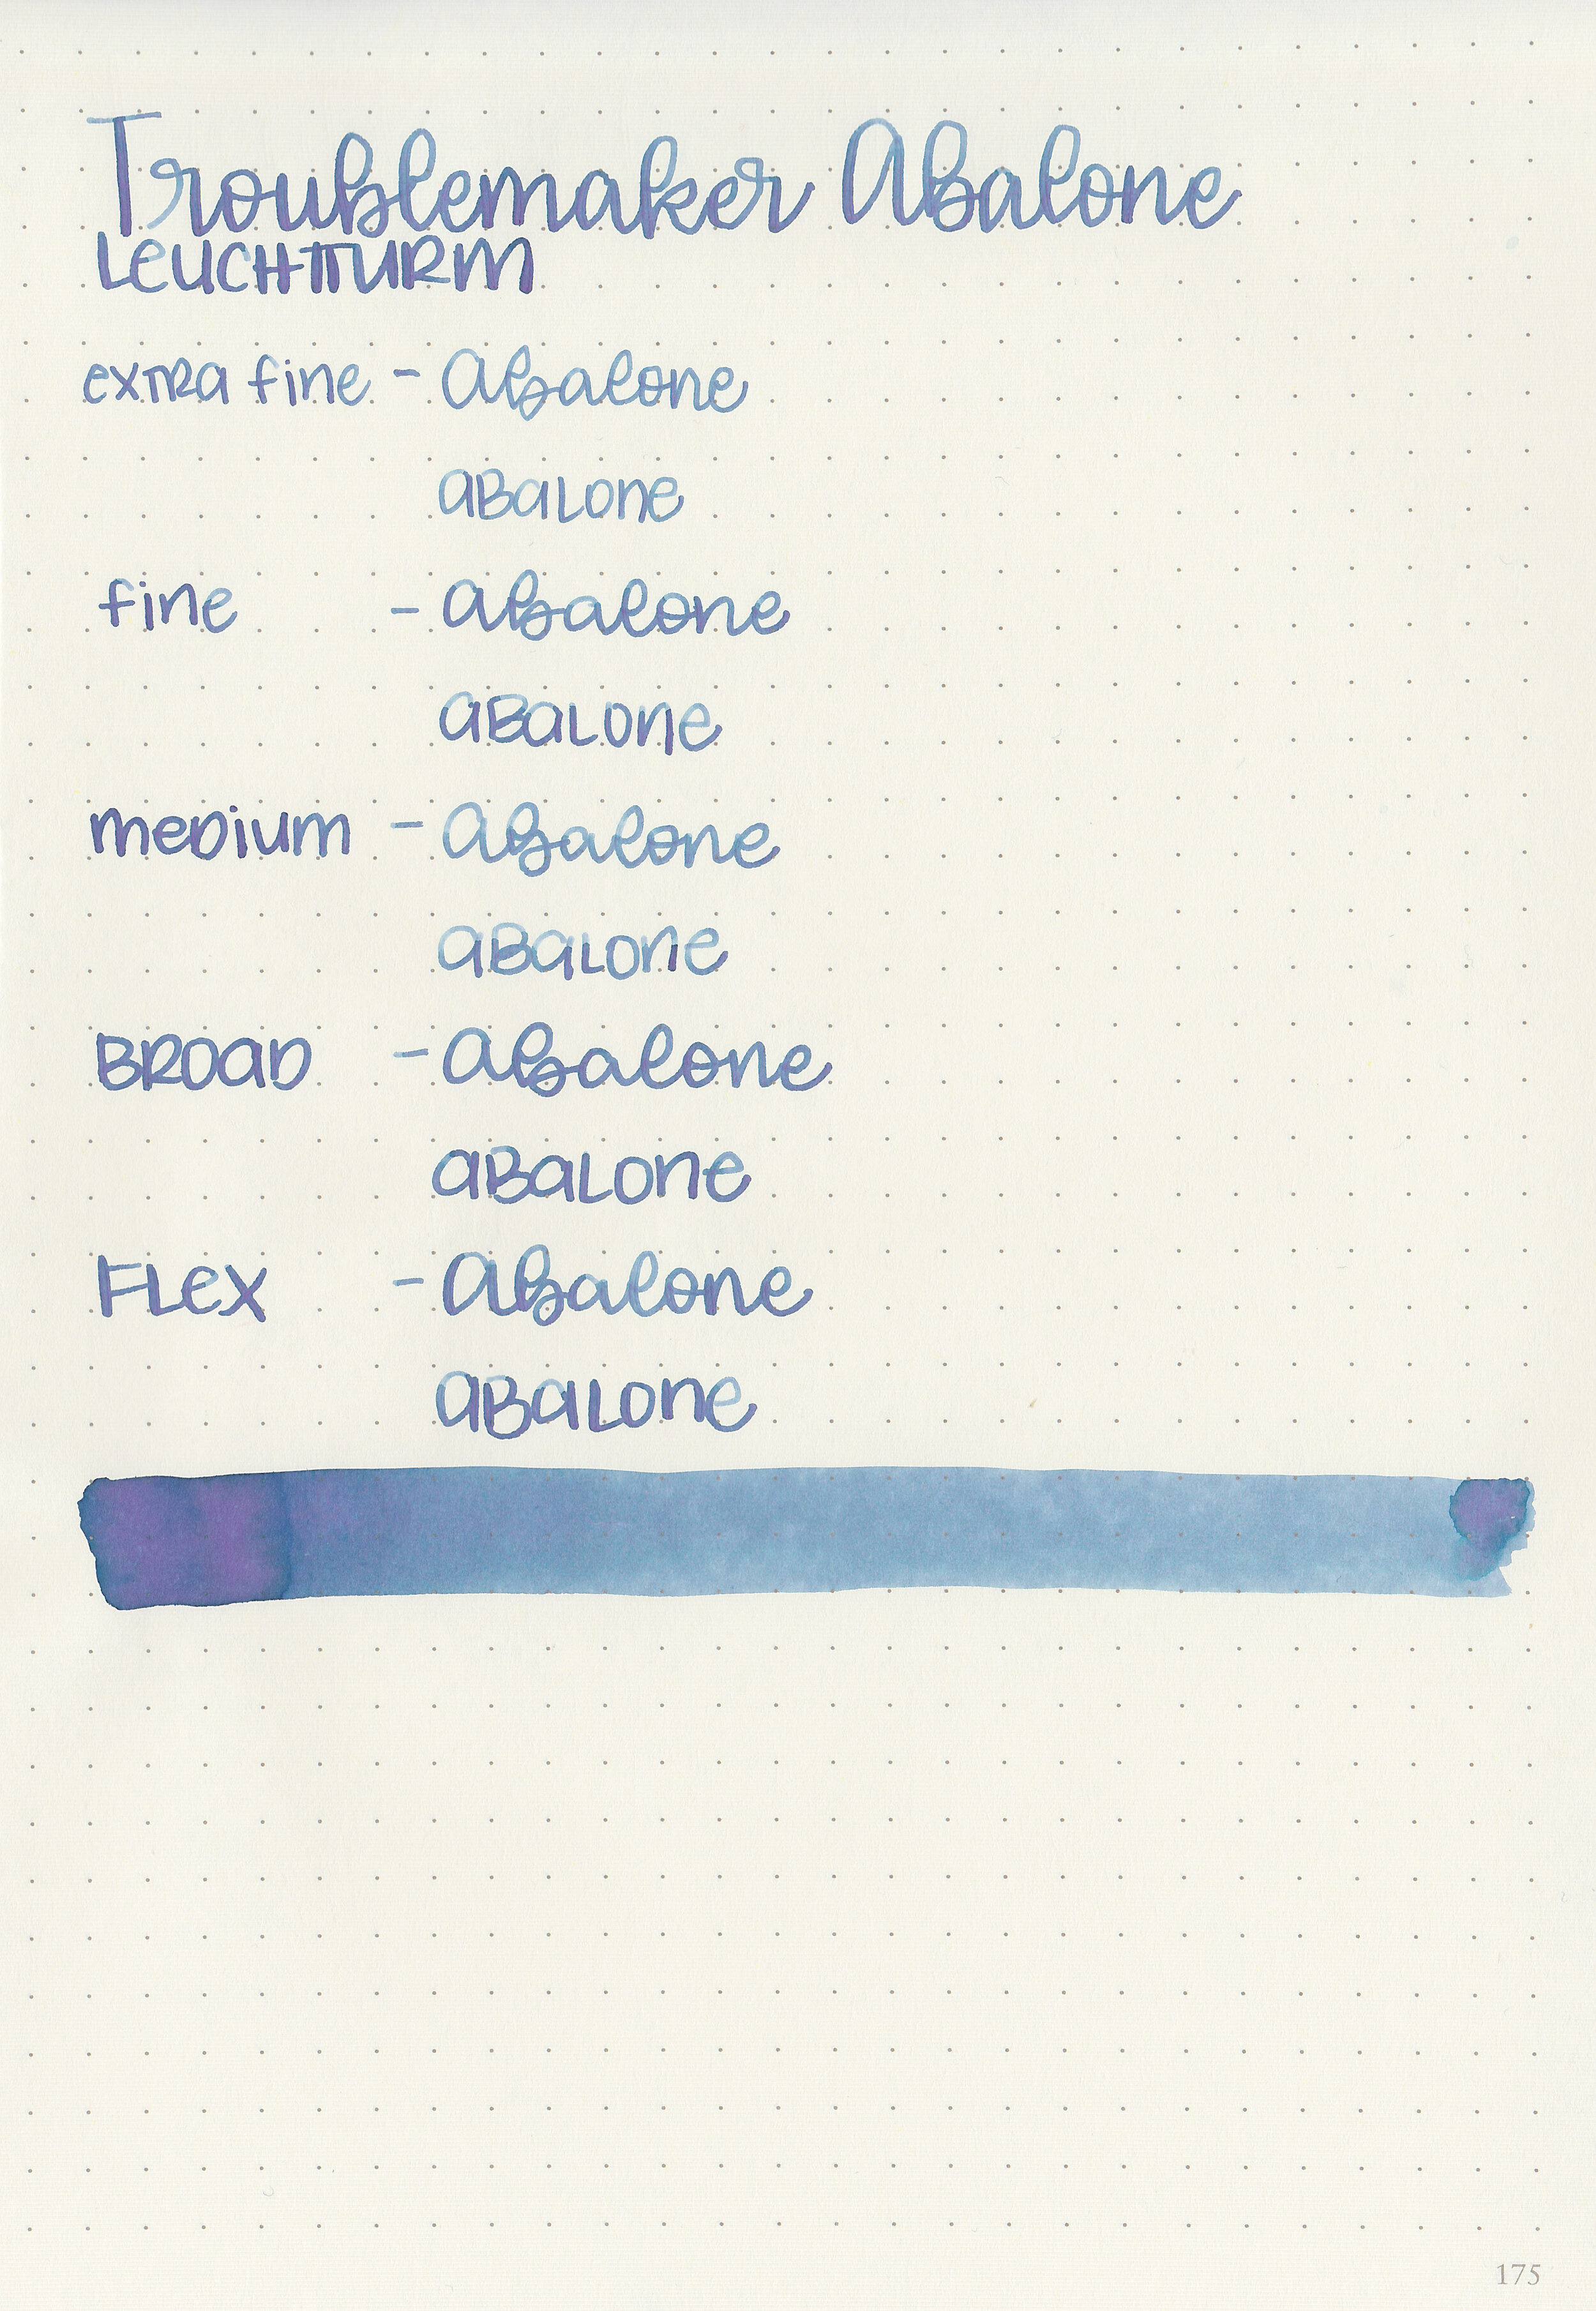 Troublemaker Abalone
LEUCHTTURM
extra fine - Abalone
Abalone
fine - Abalone
Abalone
medium - Abalone
Abalone
BROAD - Abalone
Abalone
FLEX - Abalone
Abalone
175